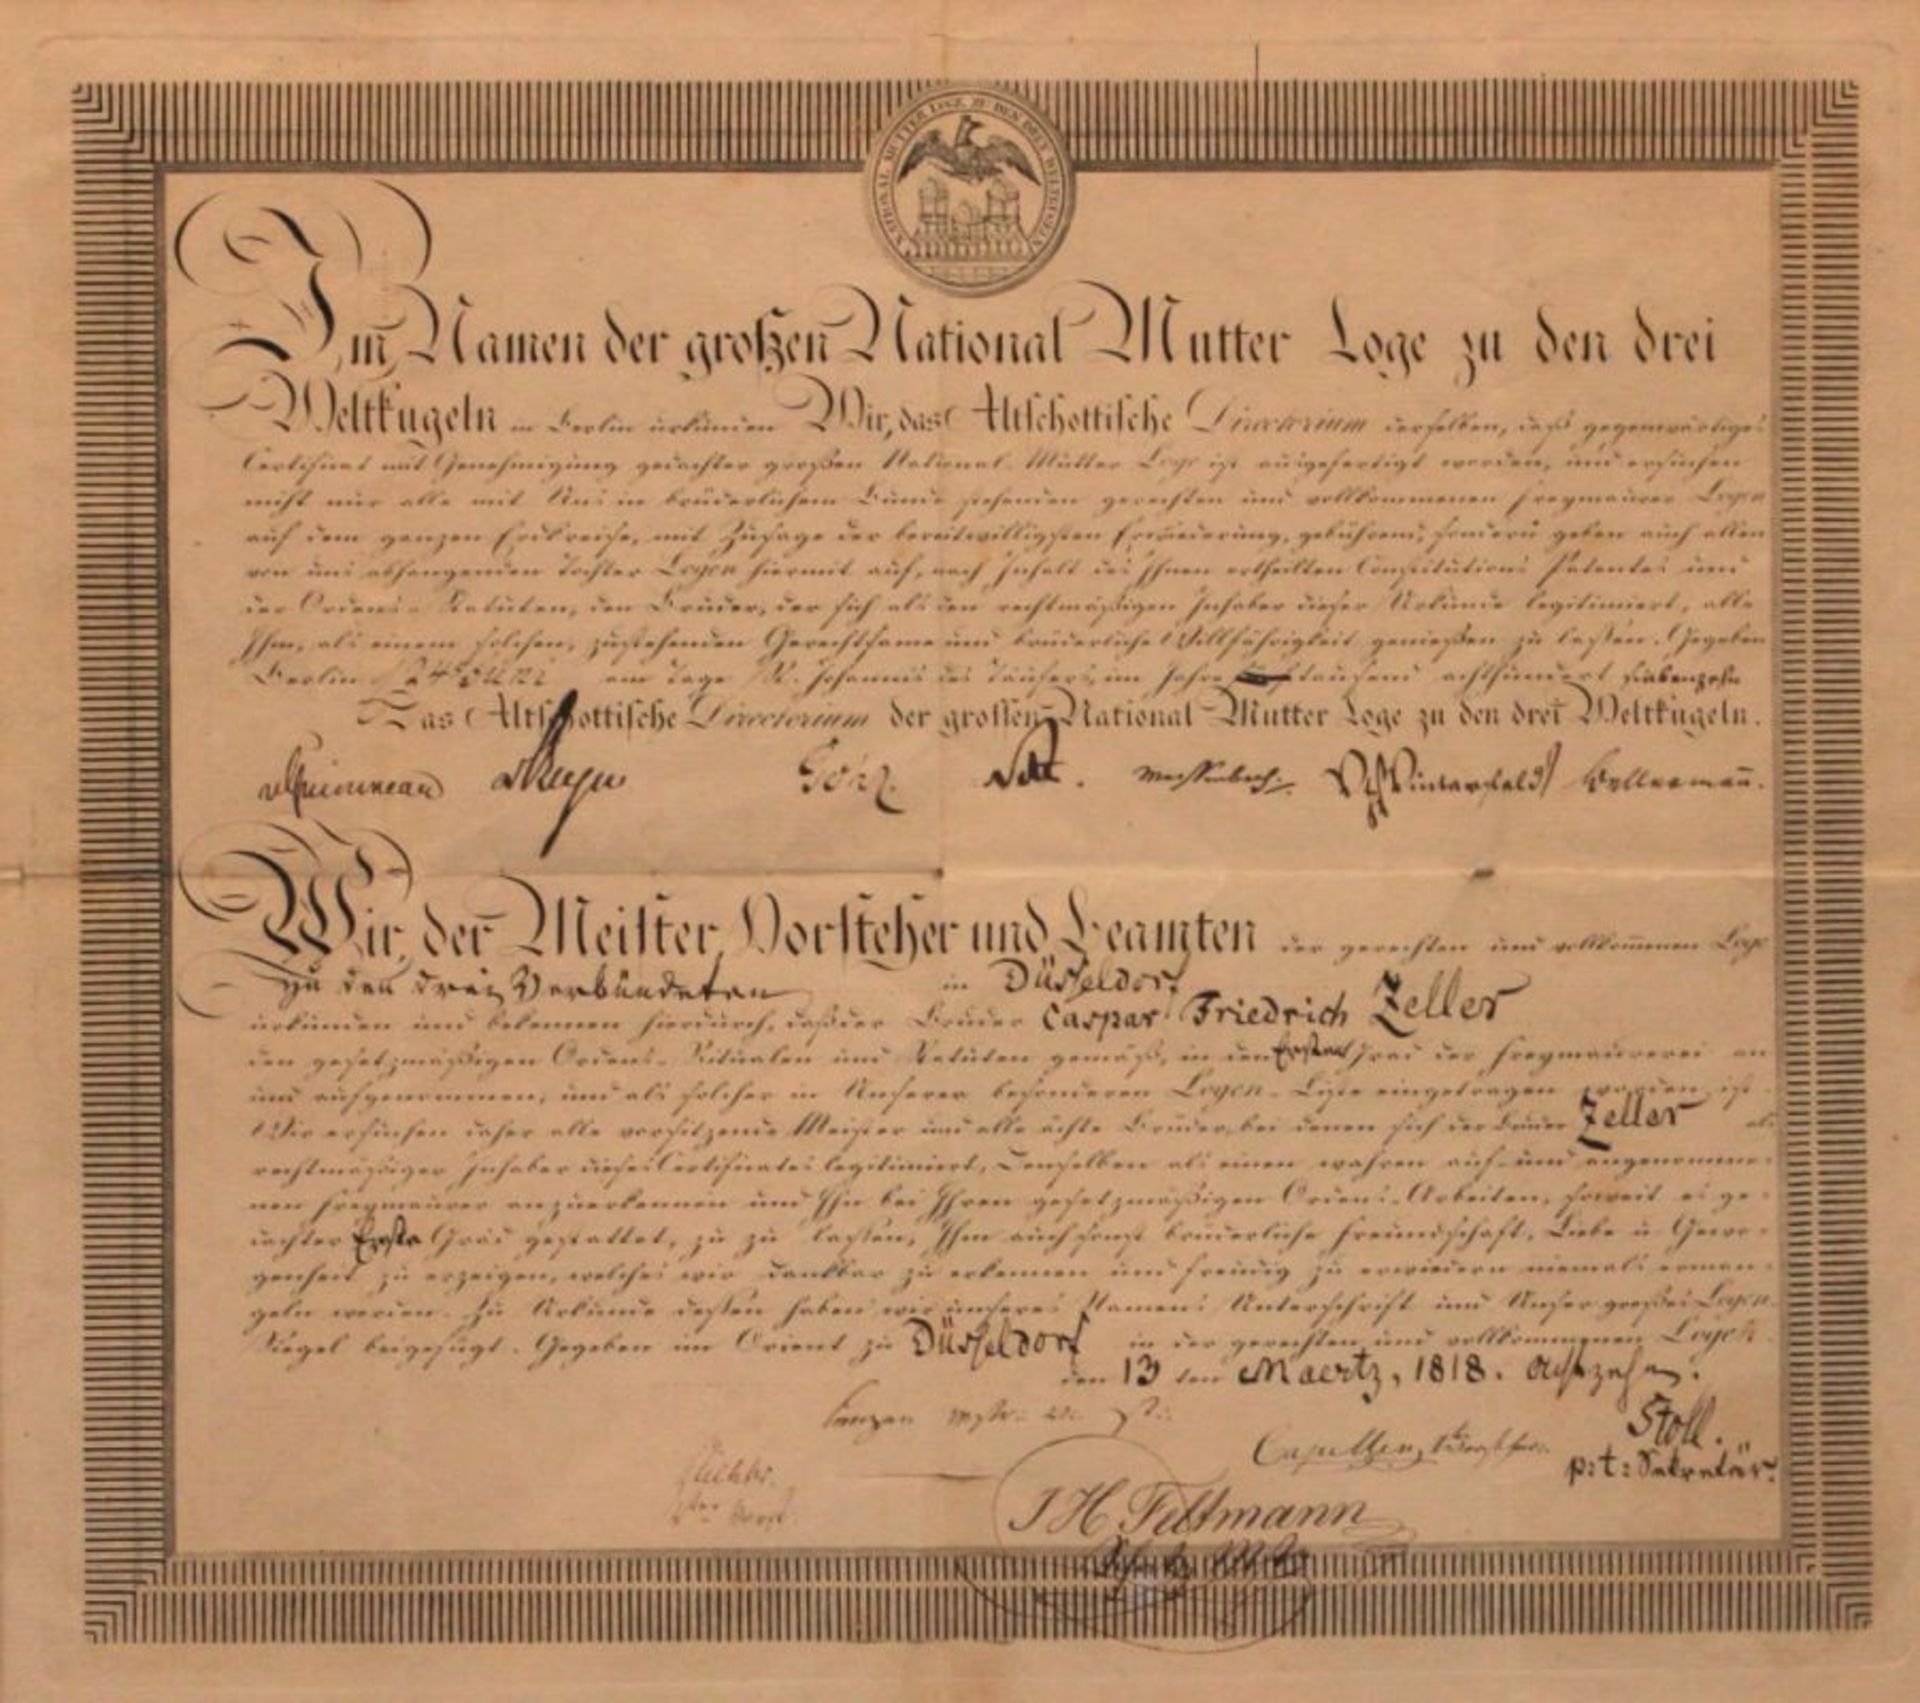 NATIONAL MUTTER LOGE ZU DEN DREI WELTKUGELN
Im Namen der großen National Mutter Loge zu den drei
Weltkugeln in Berlin urkunden Wir, das Altschottische Directorium derselben, daß gegenwärtiges
Certificat mit Genehmigung gedachter großen National-Mutter Loge ist ausgefertigt worden, und ersuchen
nicht nur alle mit Uns in brüderlichem Bunde stehenden gerechten und vollkommenen Freymaurer Logen
auf dem ganzen Erdkreise, mit Zusage der bereitwilligsten Erwiederung, gebührend, sondern geben auch allen
von uns abhangenden Tochter Logen hiermit auf, nach Inhalt des Ihnen ertheilten Constitutions Patentes und
der Ordens-Statuten, den Bruder, der sich als den rechtmäßigen Inhaber dieser Urkunde legitimiert, alle
Ihm, als einem solchen, zustehenden Gerechtsame und brüderliche Willfährigkeit genießen zu laßen. Gegeben
Berlin am Tage St. Johannis des Täufers, im Jahre tausend achthundert siebenzehn
Das Altschottische Directorium der grossen National-Mutter Loge zu den drei Weltkugeln.
Göhz. Winterfeld Bellermann.
Wir, der Meister, Vorsteher und Beamten der gerechten und vollkommenen Loge
zu den drei Verbündeten in Düsseldorf
urkunden und bekennen hierdurch, daß der Bruder Caspar Friedrich Zeller
den gesetzmäßigen Ordens-Ritualen und Statuten gemäß, in den Ersten Grad der Freymaurerei an
und aufgenommen, und als solcher in Unserer besonderen Logen-Liste eingetragen worden ist.
Wir ersuchen daher alle vorsitzende Meister und alle ächte Brüder, bei denen sich der Bruder Zeller als
rechtmäßiger Inhaber dieses Certificates legitimiert, Denselben als einen wahren auf- und angenomme-
nen Freymaurer anzuerkennen und Ihn bei Ihren gesetzmäßigen Ordens-Arbeiten, soweit es ge-
dachter Erste Grad gestattet, zu zu laßen, Ihm auch sonst brüderliche Freundschaft, Liebe u Gewo-
genheit zu erzeigen, welches wir dankbar zu erkennen und freudig zu erwiedern niemals erman-
geln werden. Zu Urkunde deßen haben wir unseres Namens Unterschrift und Unser großes Logen
Siegel beigefügt. Gegeben im Orient zu Düsseldorf in der gerechten und vollkommenen Logen
den 13 ten Maertz, 1818. Achtzehn.
Stoll.
p:t: Sekretär
J H Feltmann